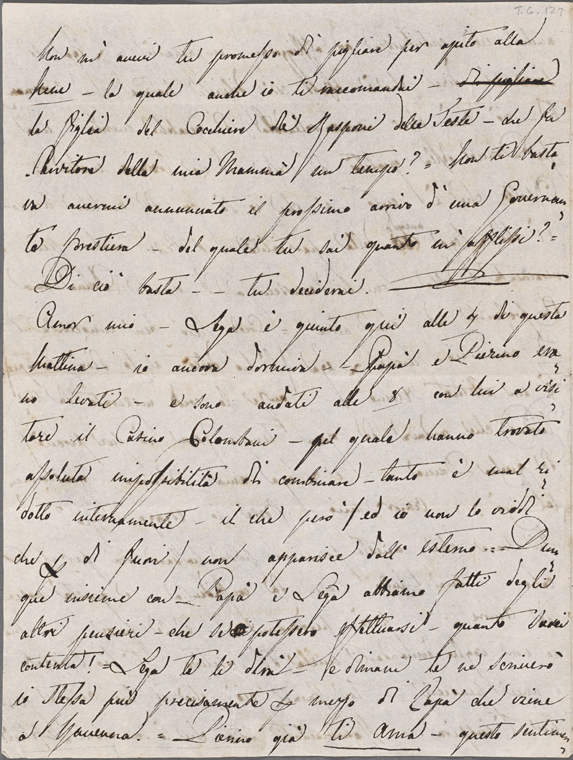 T.G. 127
Non m' avevi tu promesso di pigliare per ajuto alla
bene - la quale anche io ti raccomandai - di pigliare
la figlia del Cocchiere di Rasponi delle Teste - che fu
Servitore della mia Mammà un tempo? = Non ti basta
va avermi annunciato il prossimo arrivo d' una Governan
te forestiera - del quale tu sai quanto m' afflissi? =
Di ciò basta - - tu deciderai.
Amor mio - Lega è giunto quì alle 4 di questa
Mattina - io ancora dormiva - Papà e Pierino era
no levati - e sono andati alle 8 con lui a visi
tare il Casino Colombani - nel quale hanno trovato
assoluta impossibilità di combinare - tanto è mal ri
dotto internamente - il che però / ed io non lo vidi
che di fuori / non apparisce dall' esterno = Dun
que insieme con Papà e Lega abbiamo fatti degli
altri pensieri - che se potessero effettuarsi - quanto sarei
contenta! = Lega te li dirà - e dimani te ne scriverò
io stessa più precisamente mezzo di Papà che viene
a Ravenna = Pierino già ti ama - questo sentimen